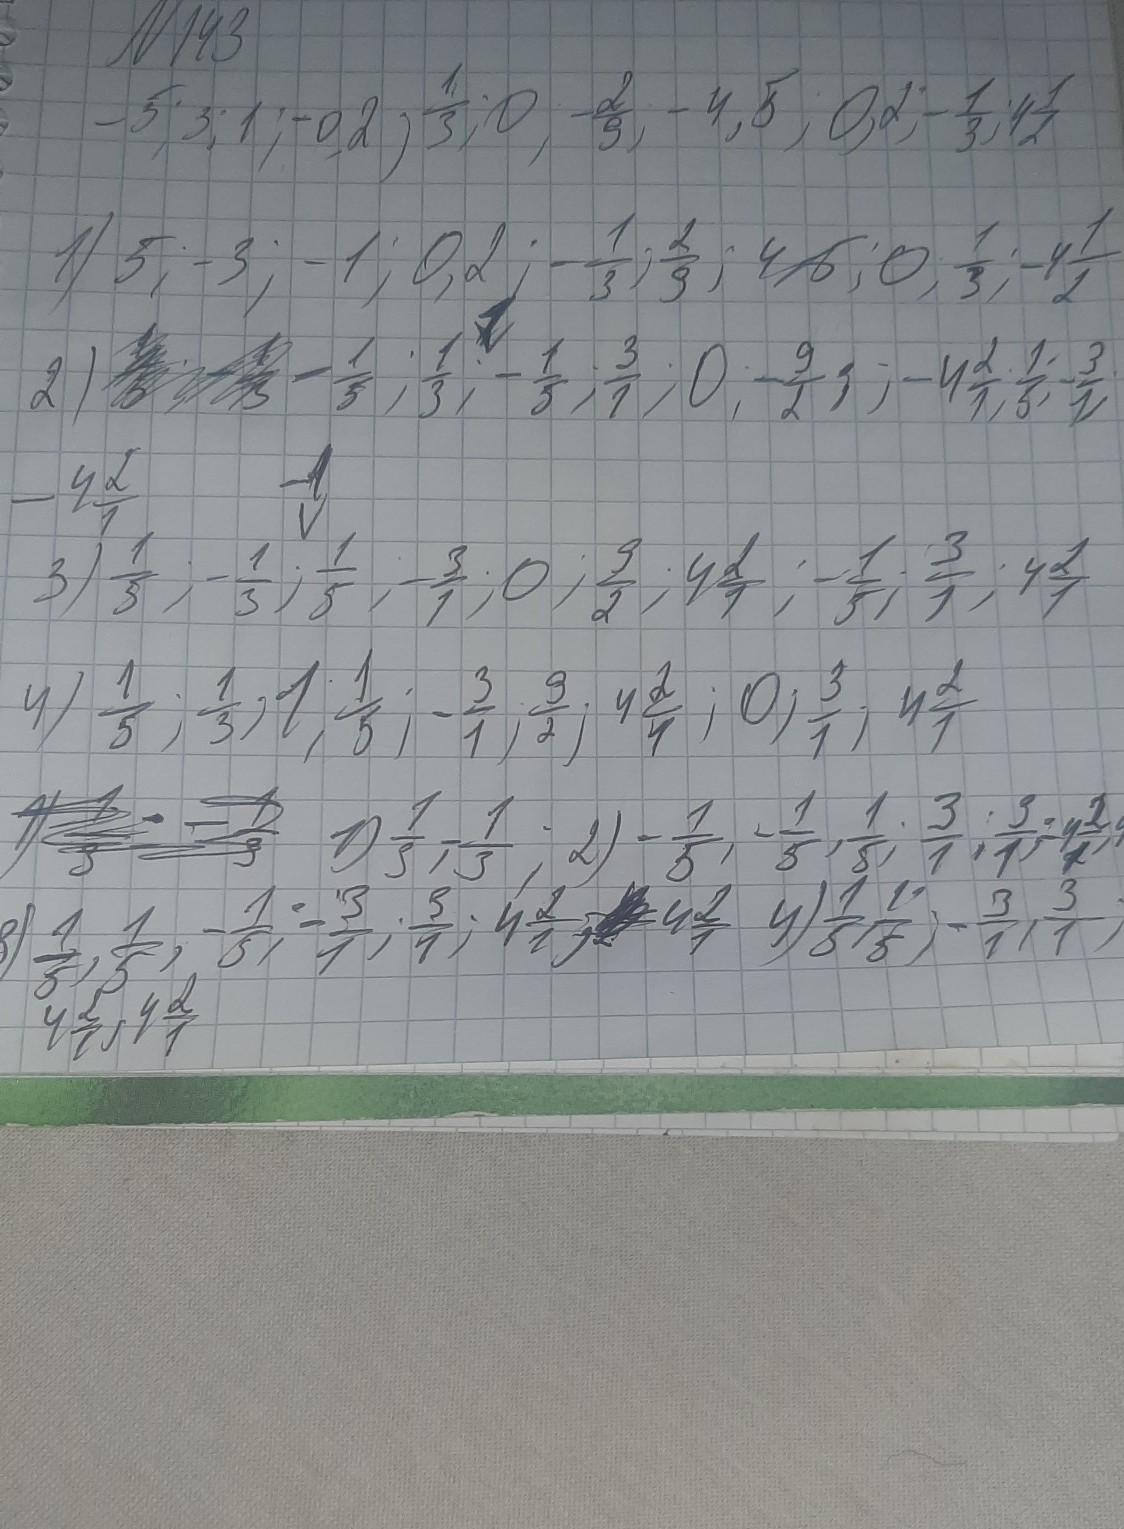 N143
-5; 3; 1; -0,2; 1/3; 0; -2/9; -4,5; 0,2; -1/3; 4 1/2
1) 5; -3; -1; 0,2; -1/3; 2/9; 4,5; 0; 1/3; -4 1/2
2) -1/5; 1/3; 1; -1/5; 3/1; 0; -9/2; -4 2/1; 1/5; -3/1;
-4 2/1
-1
3) 1/5; -1/3; 1/5; -3/1; 0; 9/2; 4 2/1; -1/5; 3/1; 4 2/1
4) 1/5; 1/3; 1; 1/5; -3/1; 9/2; 4 2/1; 0; 3/1; 4 2/1
1) 1/3, -1/3; 2) -1/5, -1/5, 1/5; 3/1; 3/1; -4 2/1,
3) 1/5, 1/5, -1/5; -3/1; 3/1; 4 2/1; 4 2/1 4) 1/5, 1/5; -3/1, 3/1;
4 2/1, 4 2/1